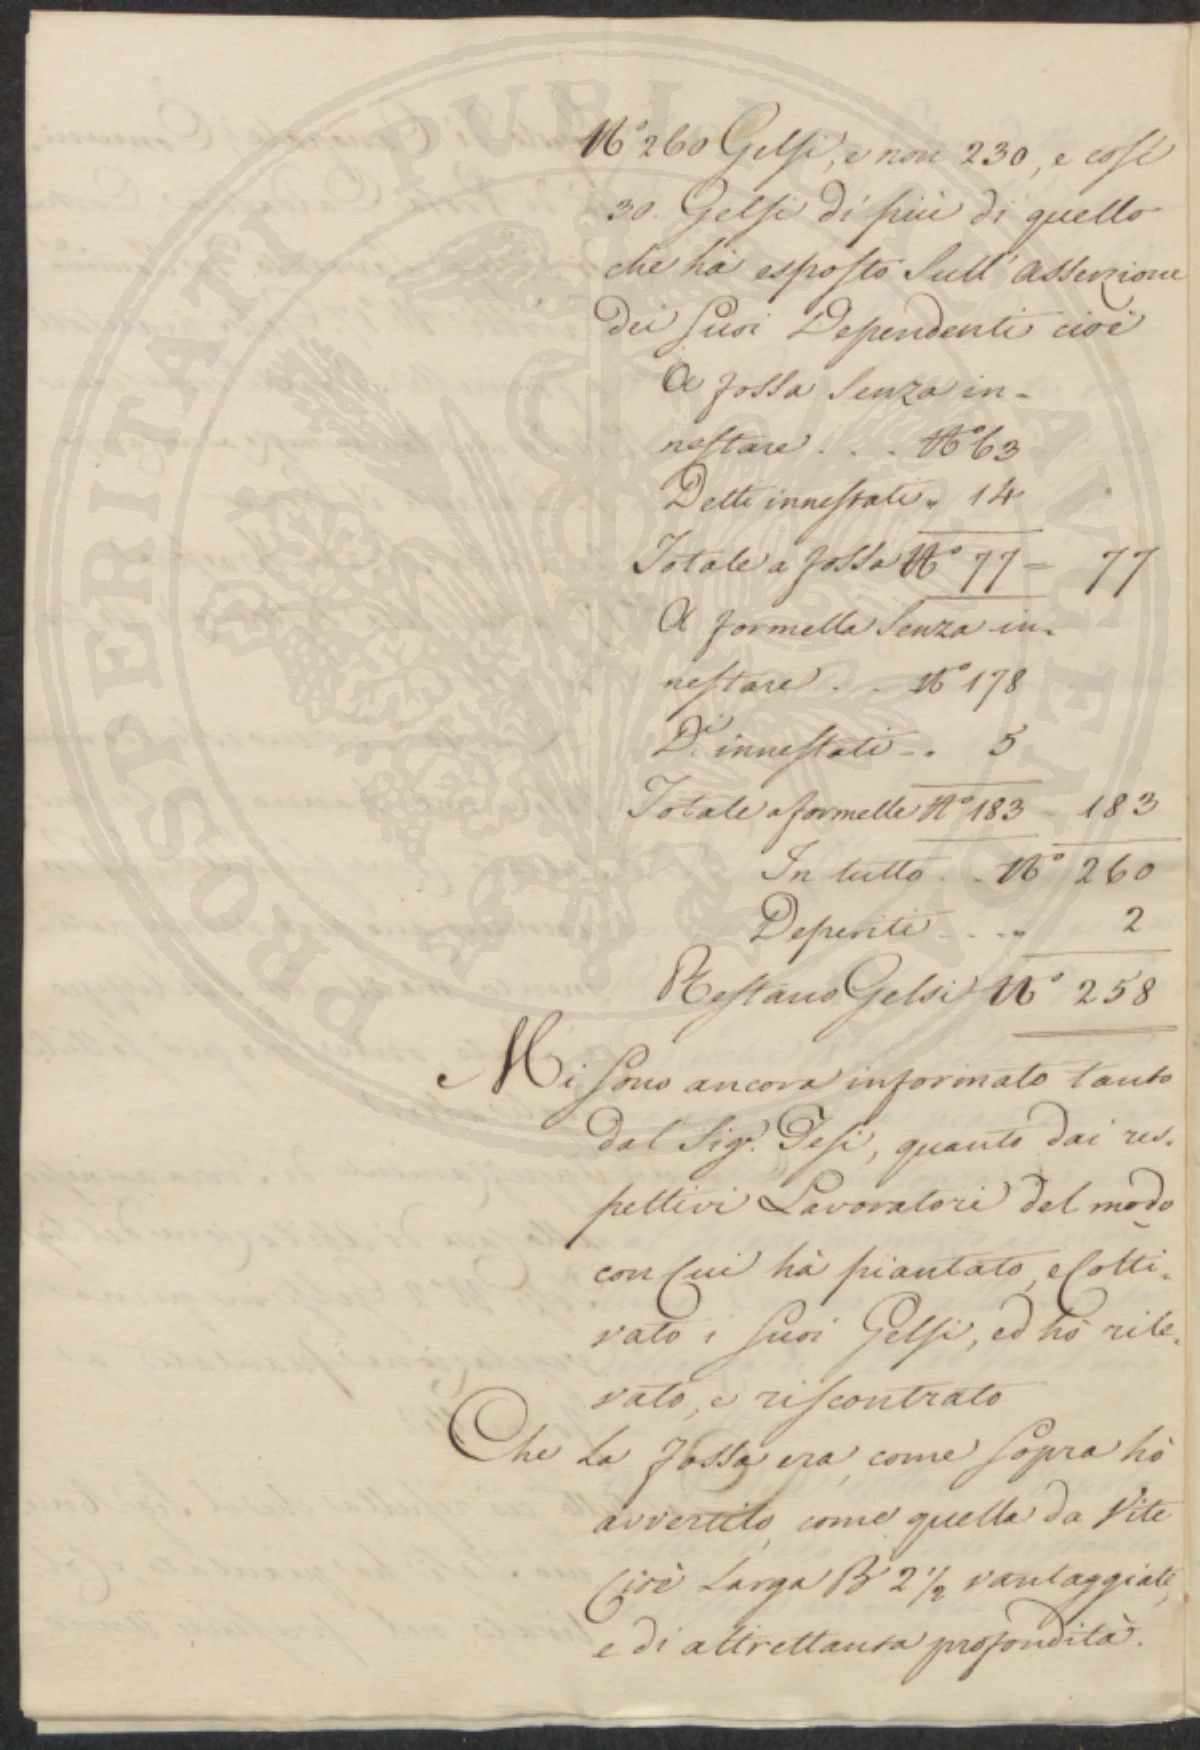 N.° 260 Gelsi, e non 230, e così
30. Gelsi di più di quello
che hà esposto Sull' asserzione
dei Suoi Dependenti cioè
A fossa Senza in-
nestare . . . N.° 63
Detti innestati „ 14
Totale a fossa N.° 77 = 77
A formella Senza in-
nestare . . N.° 178
D.i innestati - . 5
Totale a formelle N.° 183 - 183
In tutto . . N.° 260
Deperiti . . . „ 2
Restano Gelsi N.° 258
Mi Sono ancora informato tanto
dal Sig.r Tesi, quanto dai res-
pettivi Lavoratori del modo
con Cui hà piantato, e Colti-
vato i Suoi Gelsi, ed hò rile-
vato, e riscontrato
Che La fossa era, come Sopra hò
avvertito, come quella da Vite
Cioè Larga B.a 2 1/2 vantaggiati,
e di altrettanta profondità.
PROSPERITATI PUBLICAE AUGENDAE